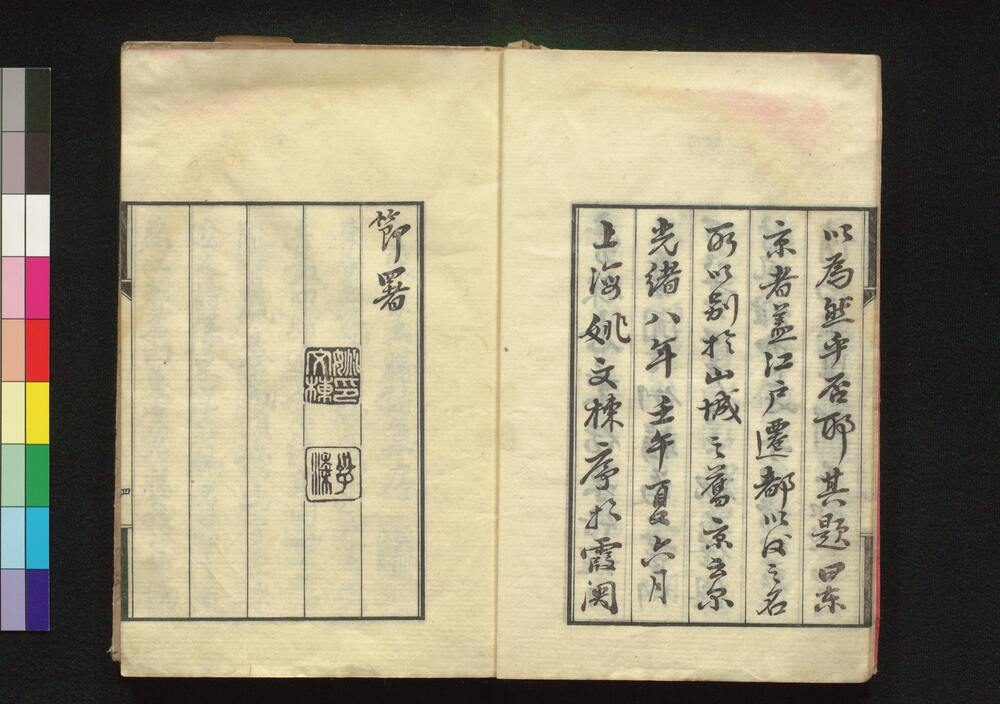 以為然乎否耶其題曰東
京者蓋江戶遷都以後之名
所以別於山城之舊京云尔
光緒八年壬午夏六月
上海姚文棟序於霞関
節署
姚印文棟
子梁
四